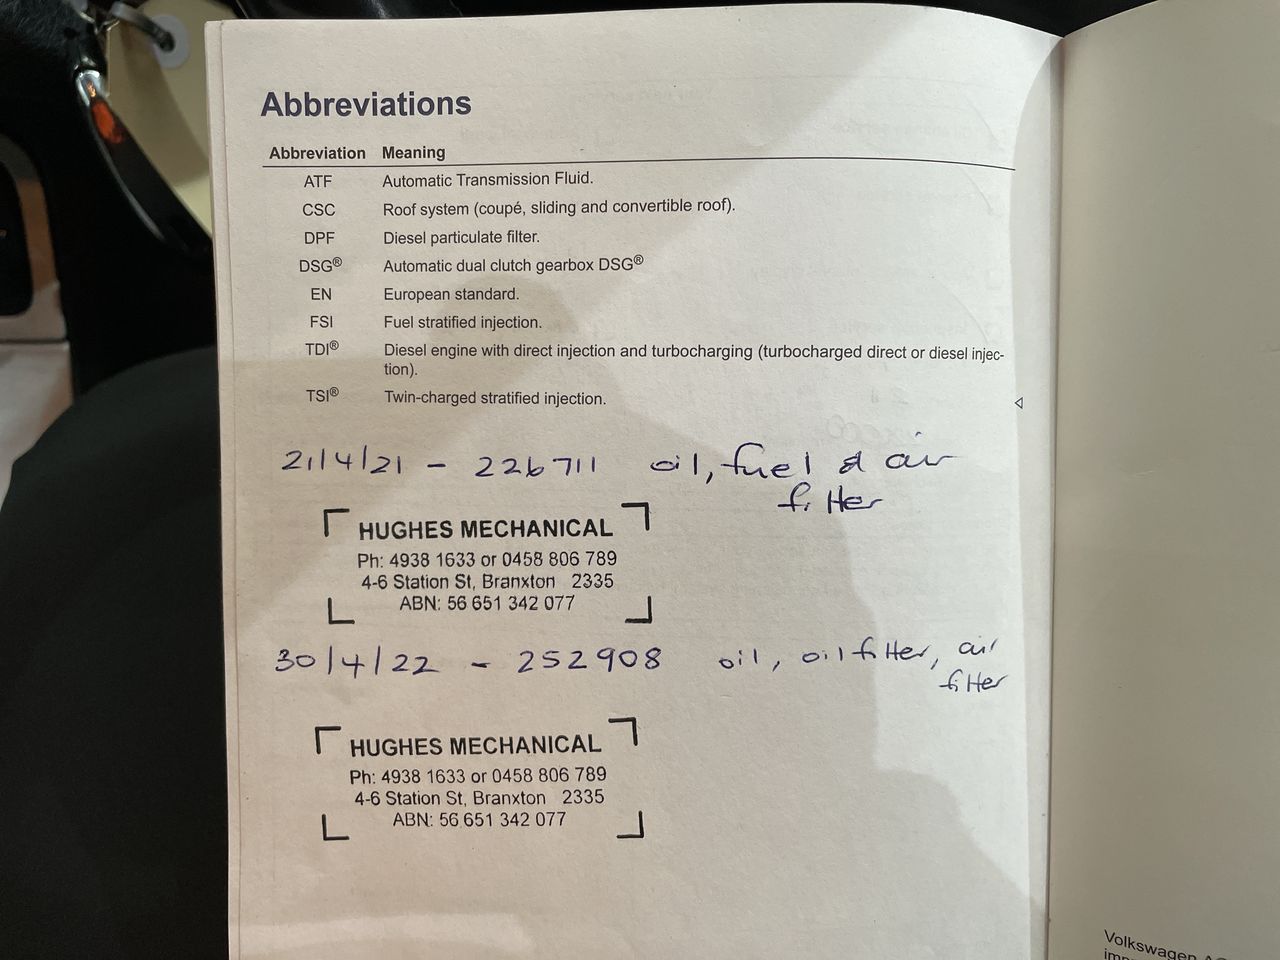 Abbreviations
Abbreviation Meaning
ATF Automatic Transmission Fluid.
CSC Roof system (coupé, sliding and convertible roof).
DPF Diesel particulate filter.
DSG® Automatic dual clutch gearbox DSG®
EN European standard.
FSI Fuel stratified injection.
TDI® Diesel engine with direct injection and turbocharging (turbocharged direct or diesel injec-
tion).
TSI® Twin-charged stratified injection.
21/4/21 - 226711 oil, fuel & air
filter
HUGHES MECHANICAL
Ph: 4938 1633 or 0458 806 789
4-6 Station St, Branxton 2335
ABN: 56 651 342 077
30/4/22 - 252908 oil, oil filter, air
filter
HUGHES MECHANICAL
Ph: 4938 1633 or 0458 806 789
4-6 Station St, Branxton 2335
ABN: 56 651 342 077
Volkswagen